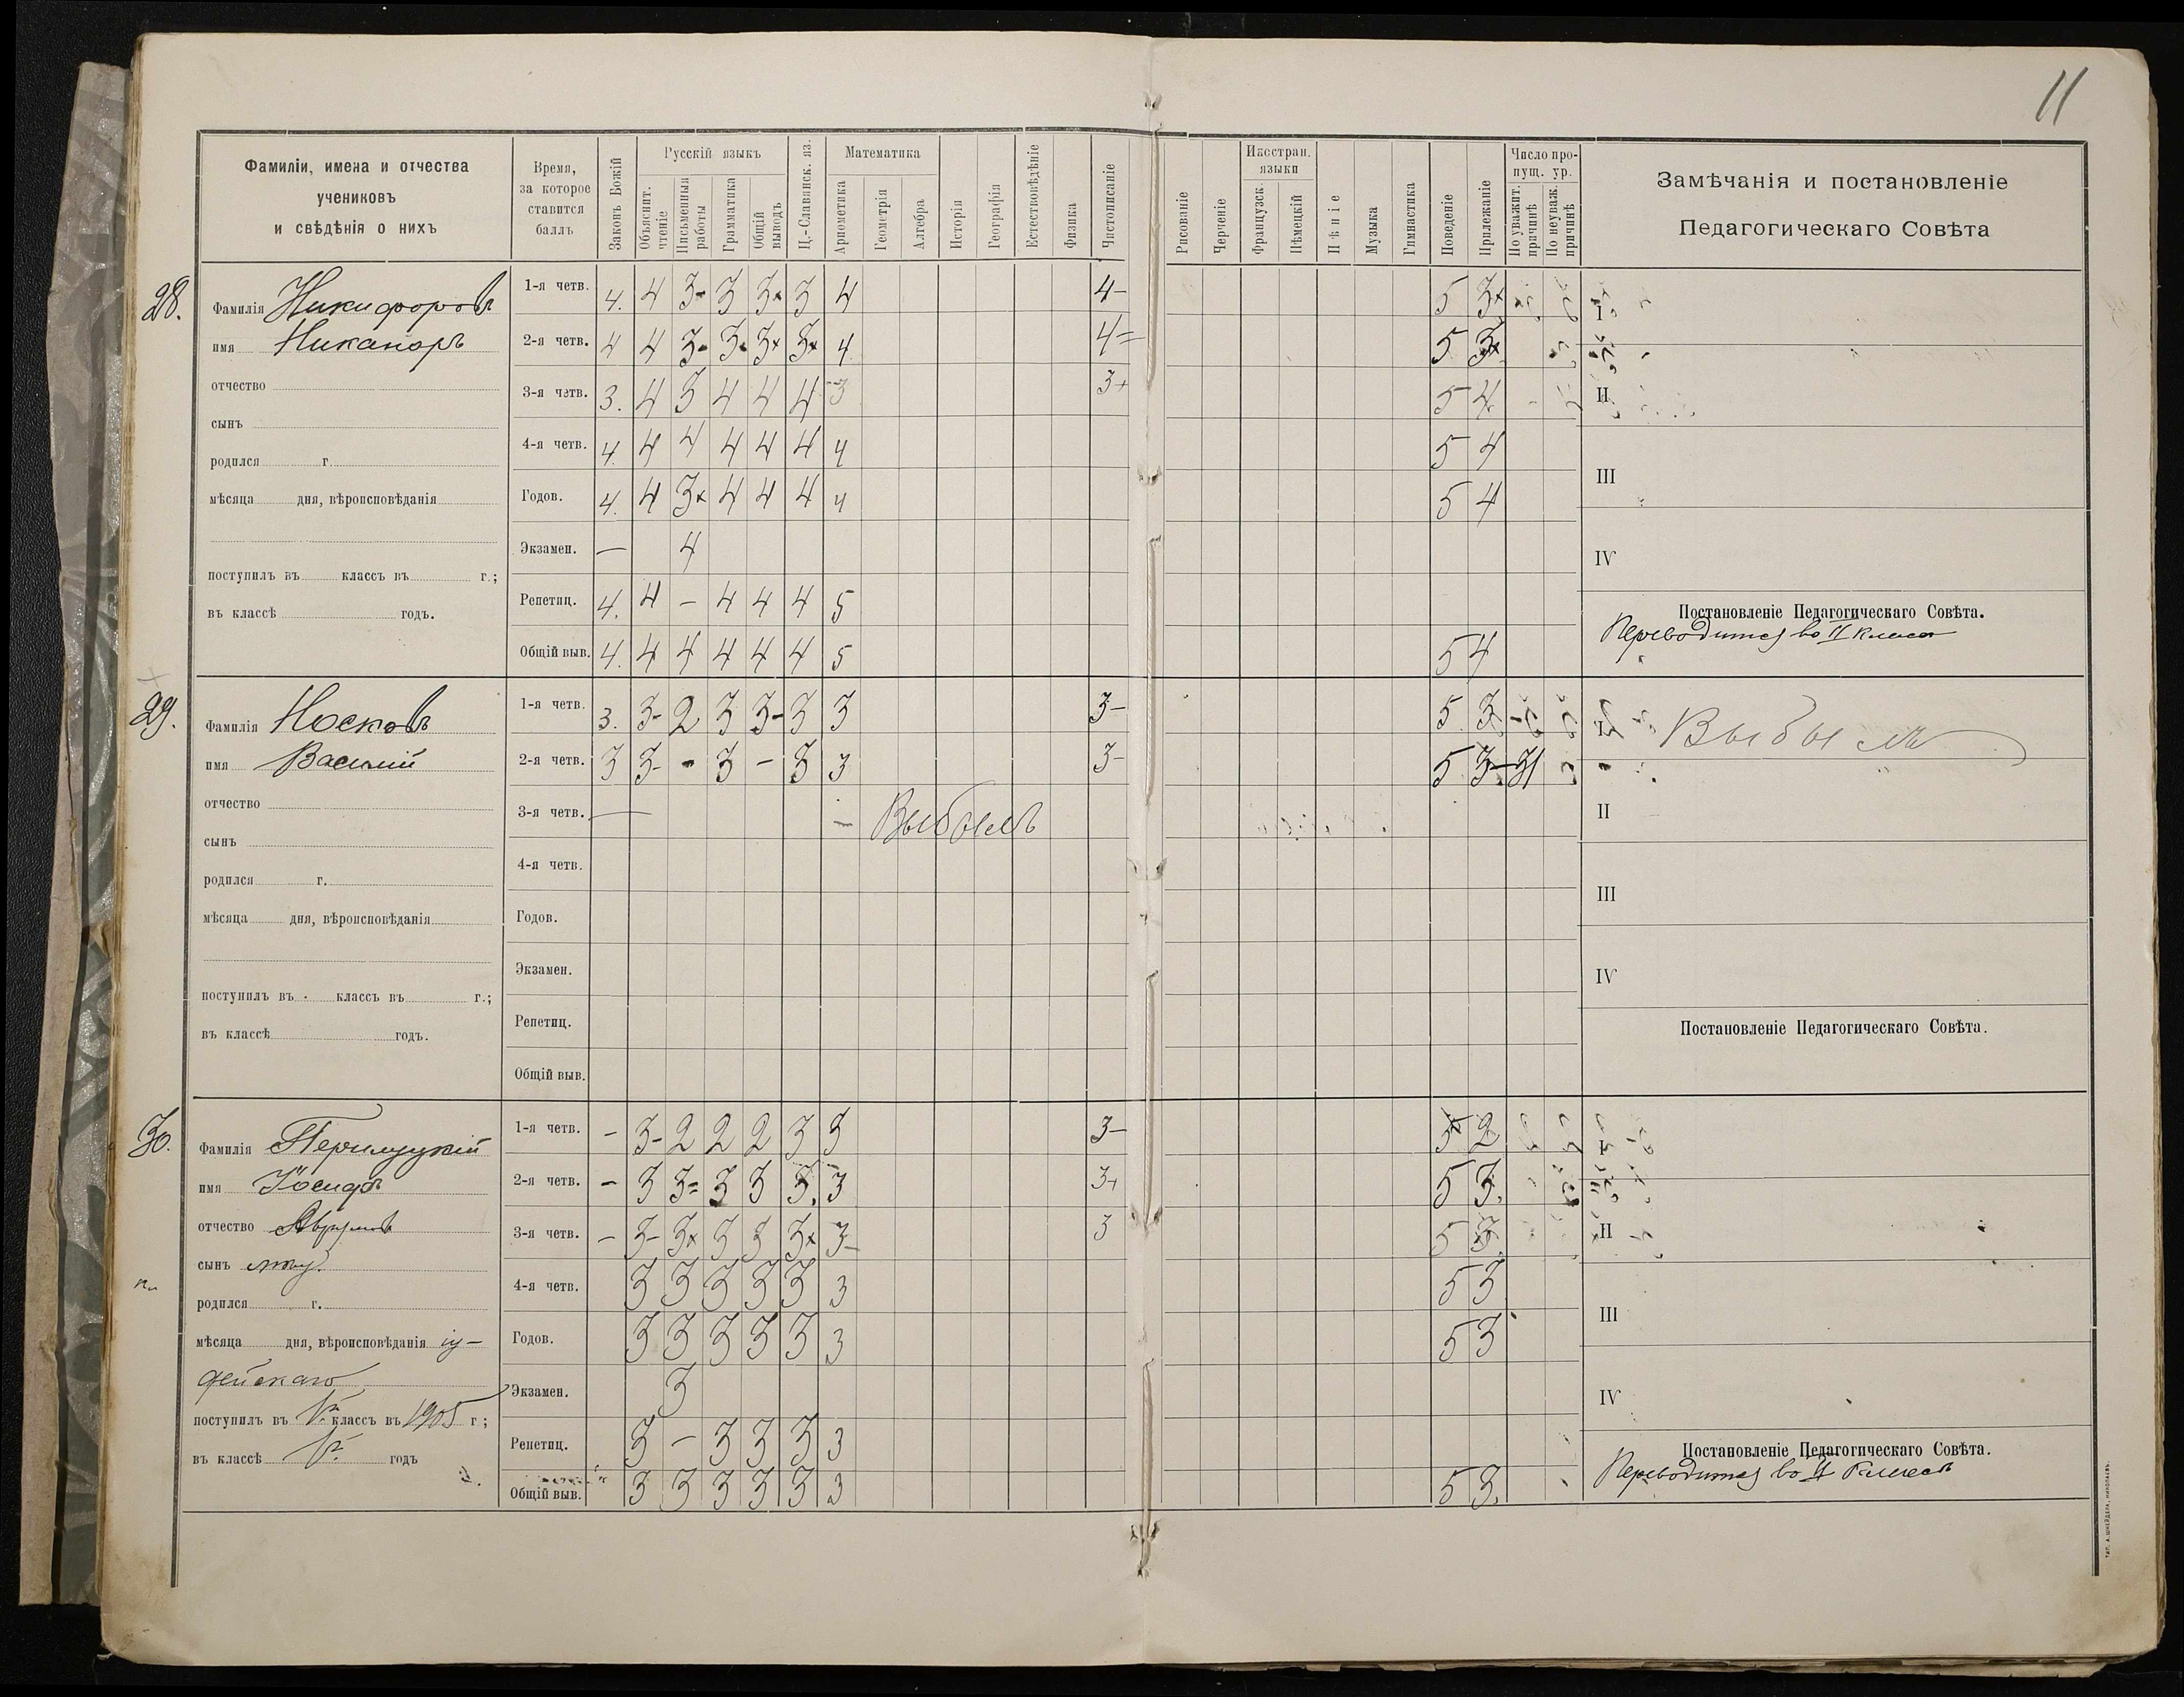 11
Фамиліи, имена и отчества
учениковъ
и свѣдѣнія о нихъ
Время,
за которое
ставится
баллъ
Законъ Божій
Русскій языкъ
Объяснит. чтеніе
Письменныя работы
Грамматика
Общій выводъ
Ц.-Славянск. яз.
Математика
Ариѳметика
Геометрія
Алгебра
Исторія
Географія
Естествовѣдѣніе
Физика
Чистописаніе
Рисованіе
Черченіе
Иностран. языки
Французск.
Нѣмецкій
Пѣніе
Музыка
Гимнастика
Поведеніе
Прилежаніе
Число пропущ. ур.
По уважит. причинѣ
По неуваж. причинѣ
Замѣчанія и постановленіе
Педагогическаго Совѣта
28.
Фамилія Никифоровъ
имя Никаноръ
отчество
сынъ
родился г.
мѣсяца дня, вѣроисповѣданія
поступилъ въ классъ въ г.;
въ классѣ годъ.
1-я четв. 4. 4 3- 3 3× 3 4 4- 5 3×
2-я четв. 4 4 3- 3- 3× 3× 4 4= 5 3×
3-я четв. 3. 4 3 4 4 4 3 3+ 5 4
4-я четв. 4. 4 4 4 4 4 4 5 4
Годов. 4. 4 3× 4 4 4 4 5 4
Экзамен. — 4
Репетиц. 4. 4 — 4 4 4 5
Общій выв. 4. 4 4 4 4 4 5 5 4
I
II
III
IV
Постановленіе Педагогическаго Совѣта.
Переводится во II классъ
29.
Фамилія Носковъ
имя Василій
отчество
сынъ
родился г.
мѣсяца дня, вѣроисповѣданія
поступилъ въ классъ въ г.;
въ классѣ годъ.
1-я четв. 3. 3- 2 3 3- 3 3 3- 5 3
2-я четв. 3 3- - 3 - 3 3 3- 5 3- 31
3-я четв. — — Выбылъ
4-я четв.
Годов.
Экзамен.
Репетиц.
Общій выв.
I Выбылъ
II
III
IV
Постановленіе Педагогическаго Совѣта.
30.
Фамилія
имя Іосифъ
отчество
сынъ
родился г.
мѣсяца дня, вѣроисповѣданія іу-
дейскаго
поступилъ въ классъ въ 1905 г;
въ классѣ годъ
1-я четв. - 3- 2 2 2 3 3 3- 5 2
2-я четв. - 3 3= 3 3 3. 3 3+ 5 3.
3-я четв. - 3- 3× 3 3 3× 3- 3 5 3
4-я четв. 3 3 3 3 3 3 5 3
Годов. 3 3 3 3 3 3 5 3
Экзамен. 3
Репетиц. 3 — 3 3 3 3
Общій выв. 3 3 3 3 3 3 5 3.
I
II
III
IV
Постановленіе Педагогическаго Совѣта.
Переводится во II классъ
ТИП. А. ШНЕЙДЕРА, НИКОЛАЕВЪ.